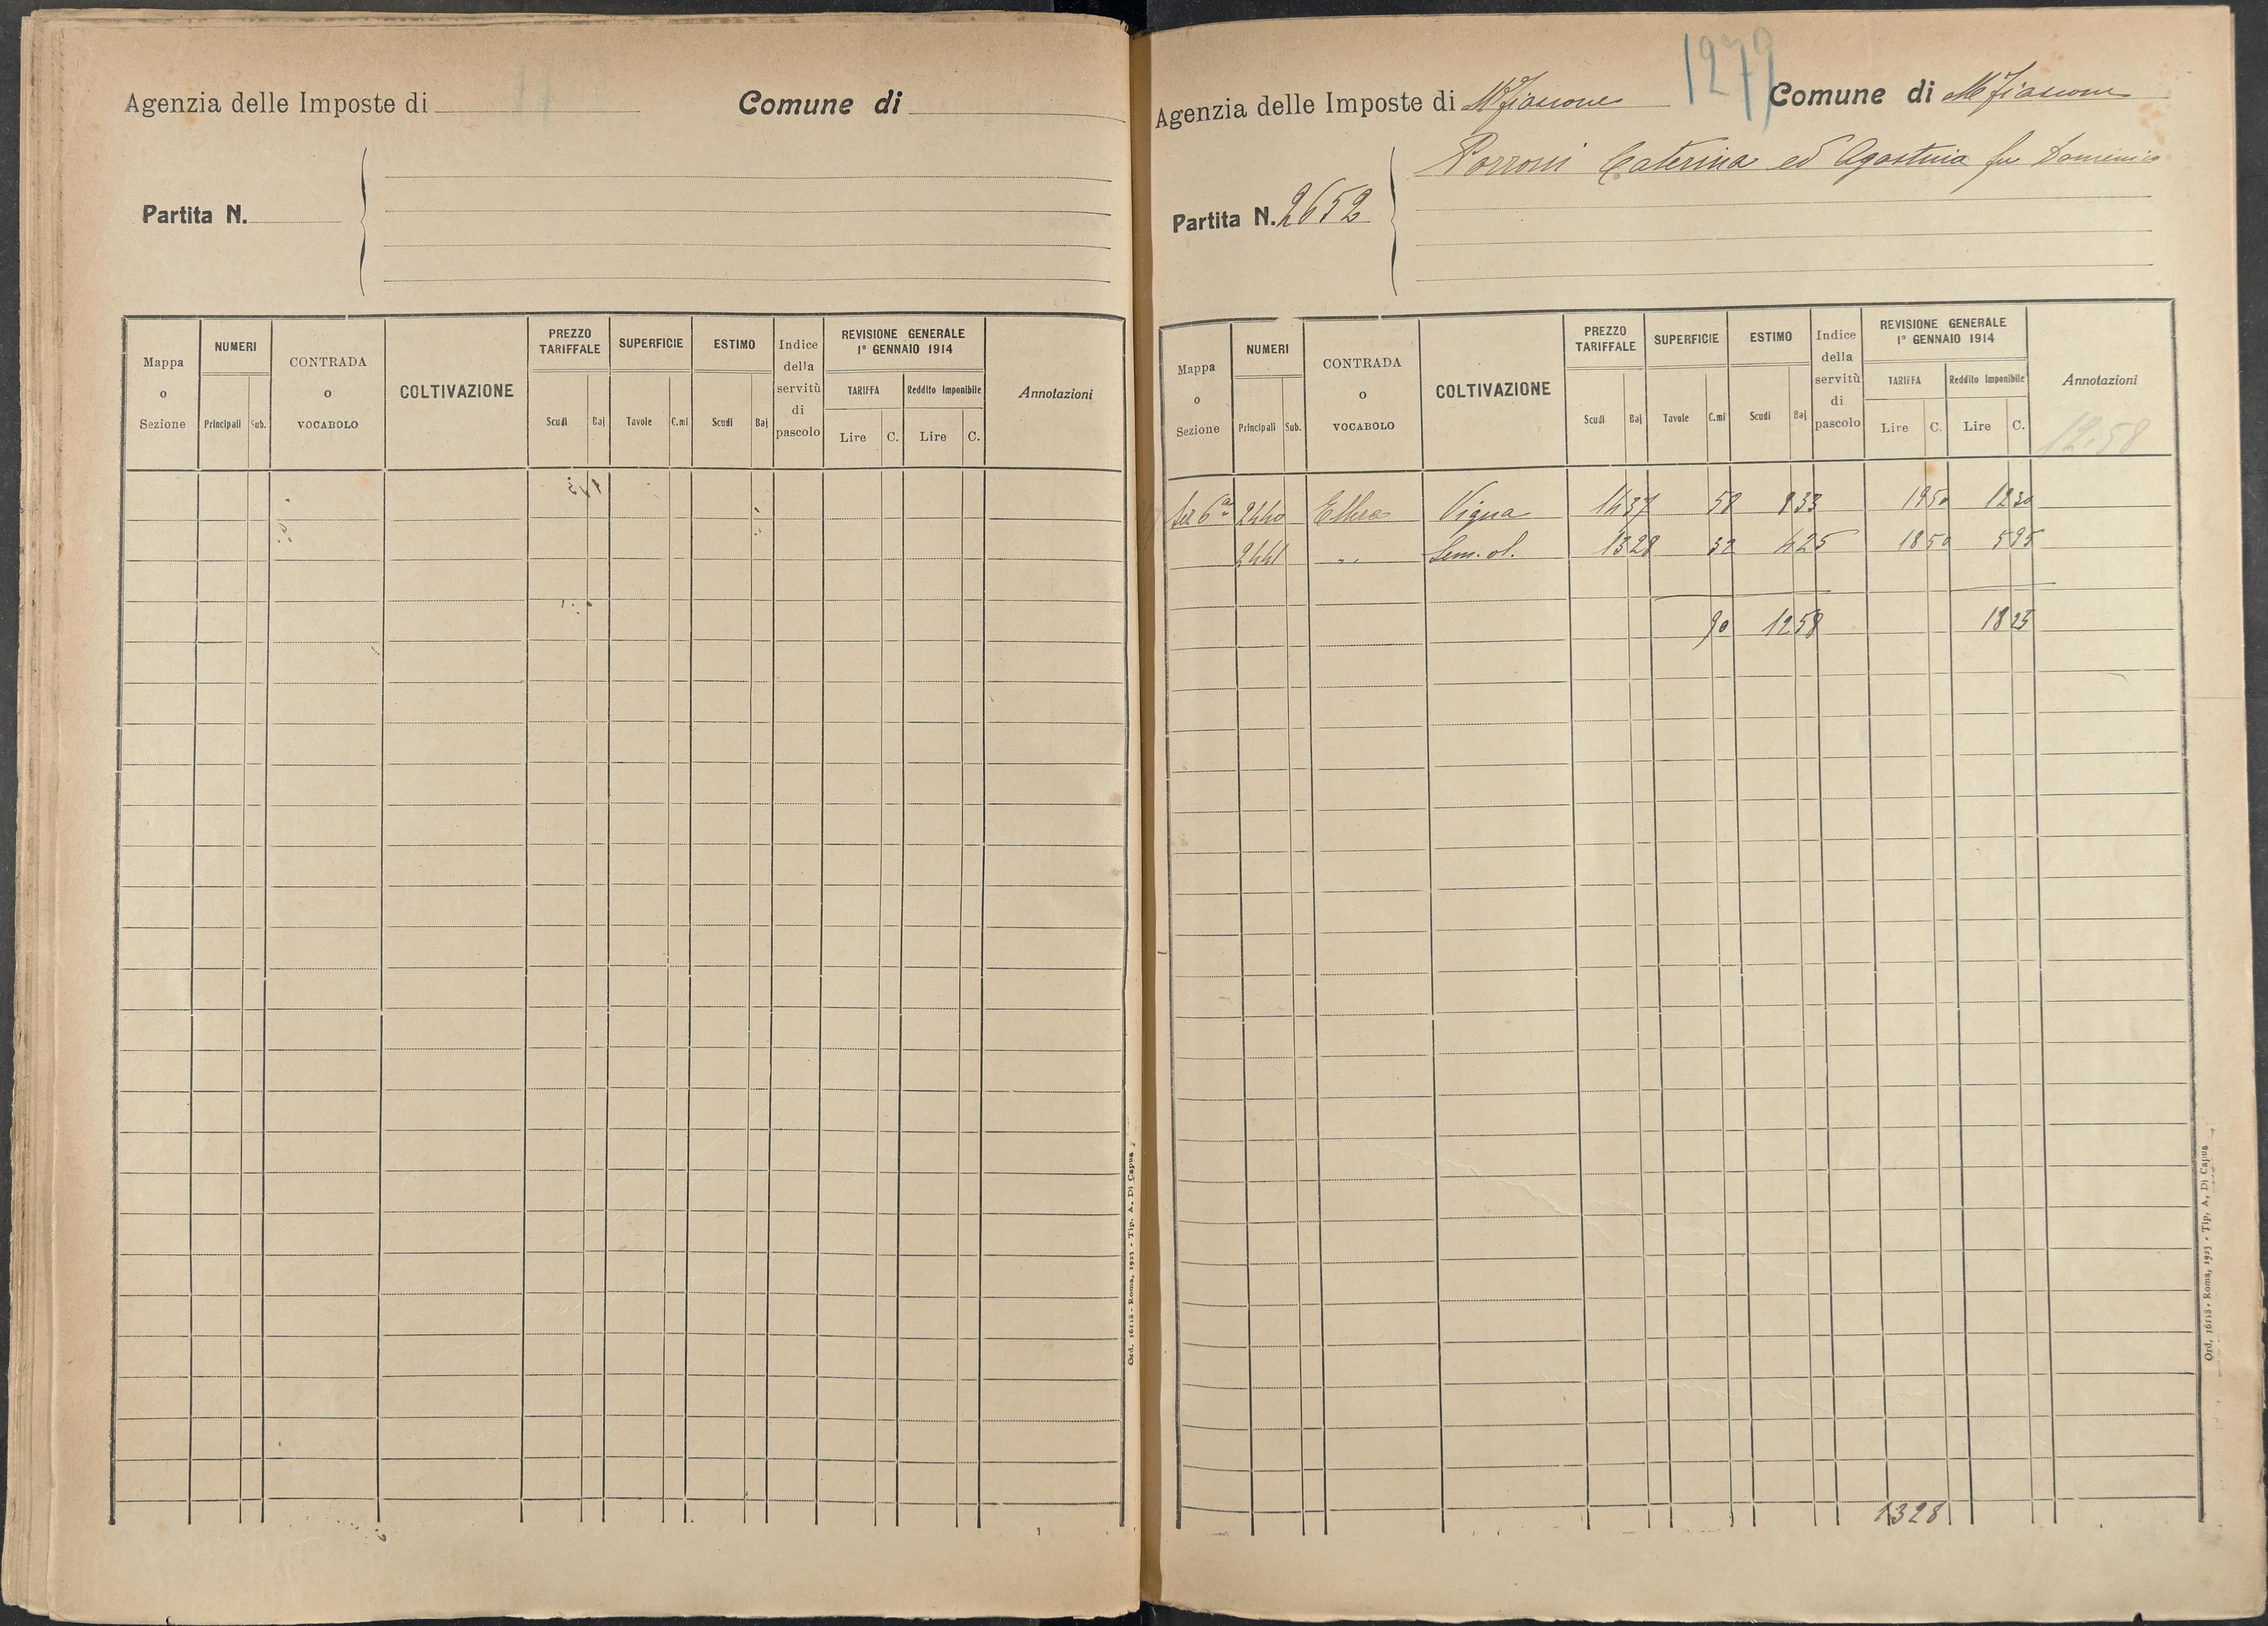 Agenzia delle Imposte di Comune di
Partita N.
Mappa o Sezione
NUMERI
Principali Sub.
CONTRADA o VOCABOLO
COLTIVAZIONE
PREZZO TARIFFALE
Scudi Baj
SUPERFICIE
Tavole C.mi
ESTIMO
Scudi Baj
Indice della servitù di pascolo
REVISIONE GENERALE
1° GENNAIO 1914
TARIFFA Reddito Imponibile
Lire C. Lire C.
Annotazioni
Ord. 16118 - Roma, 1923 - Tip. A. Di Capua
1279
Agenzia delle Imposte di Mfiascone Comune di Mfiascone
Porroni Caterina ed Agostina fu Domenico
Partita N. 2652
Mappa o Sezione
NUMERI
Principali Sub.
CONTRADA o VOCABOLO
COLTIVAZIONE
PREZZO TARIFFALE
Scudi Baj
SUPERFICIE
Tavole C.mi
ESTIMO
Scudi Baj
Indice della servitù di pascolo
REVISIONE GENERALE
1° GENNAIO 1914
TARIFFA Reddito Imponibile
Lire C. Lire C.
Annotazioni
12.58
Sez 6a 2440 Vigna 14 37 58 8 33 19 50 12 30
2441 " Sem. ol. 13 28 32 4 25 18 50 5 95
90 12 58 18 25
1328
Ord. 16118 - Roma, 1923 - Tip. A. Di Capua